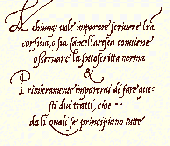 A chiunque vuole imparare scrivere lr̃a
corsiua, o sia cancellaresca conuiene
osseruare la sottoscritta norma
&
Primieramente imparerai di fare que-
sti dui tratti, cioe - -
da li quali se principiano tutte